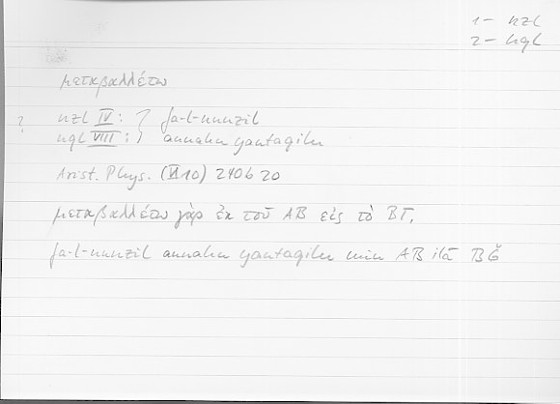 1 – nzl
2 – nql
μεταβαλλέτω
? nzl IV : } fa-l-nunzil
nql VIII : } annahu yantaqilu
Arist. Phys. (VI 10) 240b20
μεταβαλλέτω γὰρ ἐκ τοῦ AB εἰς τὸ BΓ,
fa-l-nunzil annahu yantaqilu min AB ilā BǦ